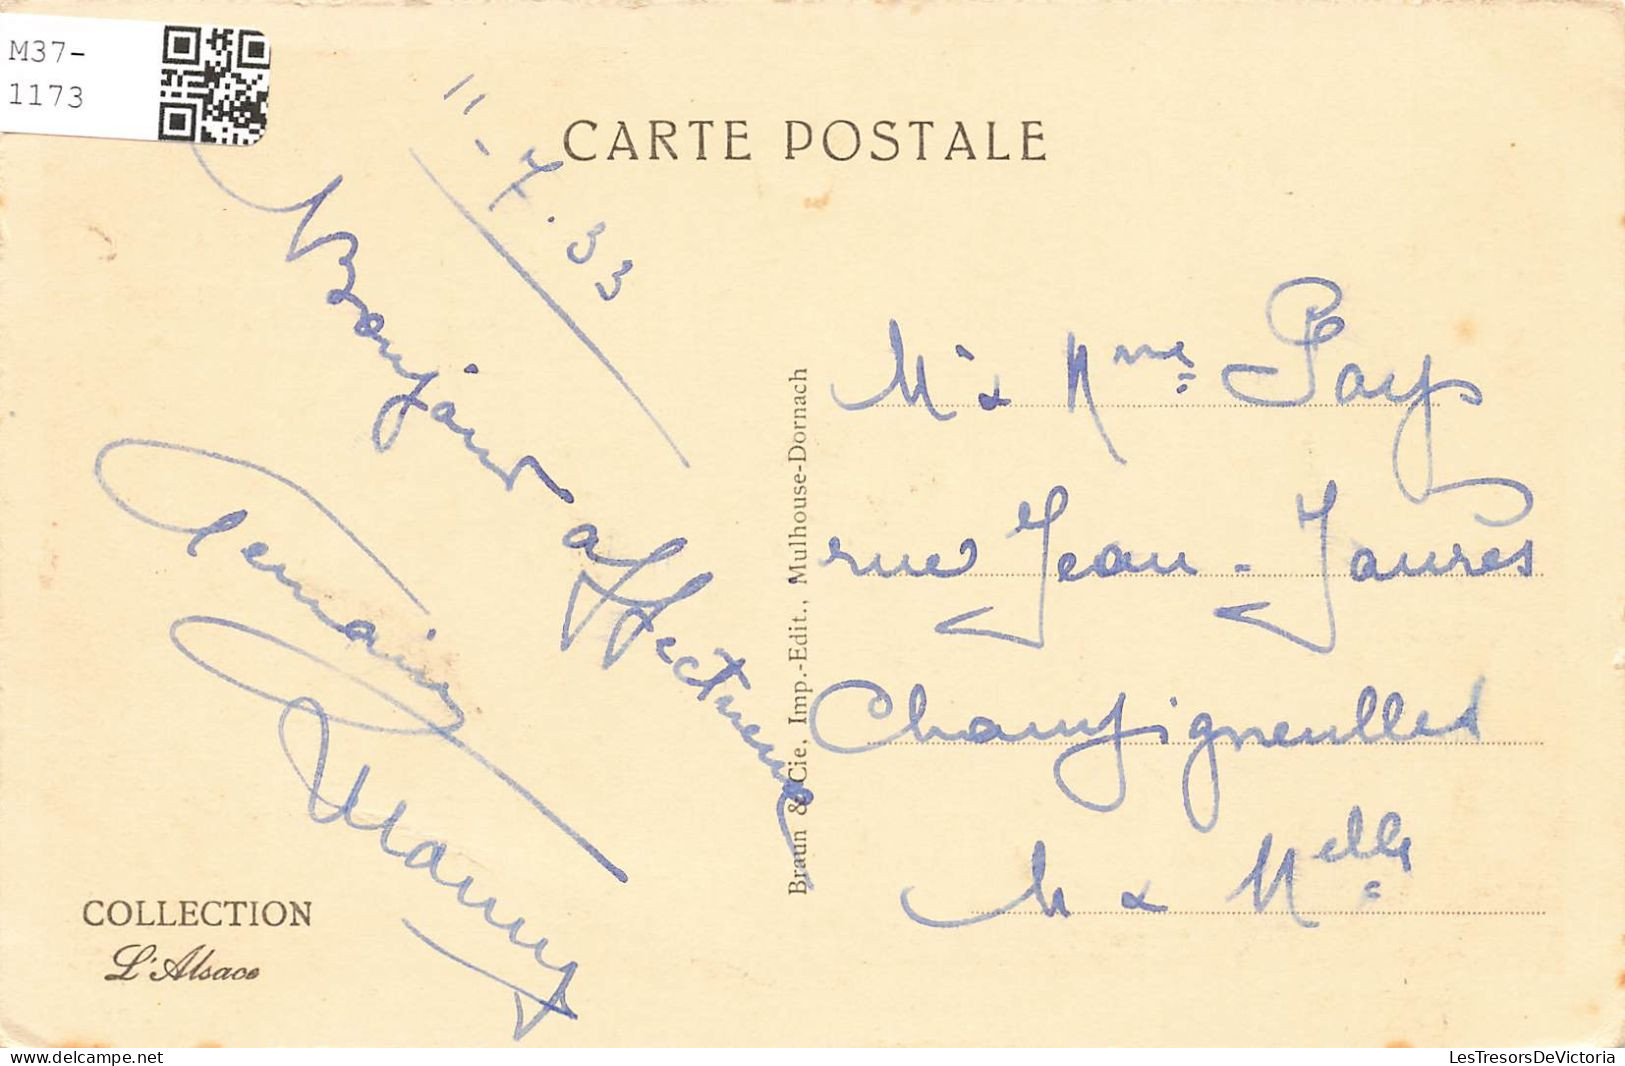 M37-
1173
CARTE POSTALE
11-7.33
Bonjour affectueux
Germaine
COLLECTION
L'Alsace
Braun & Cie, Imp.-Edit., Mulhouse-Dornach
Mr & Mme Pays
rue Jean-Jaurès
Champigneulles
M & Melle
LesTresorsDeVictoria
https://www.delcampe.net